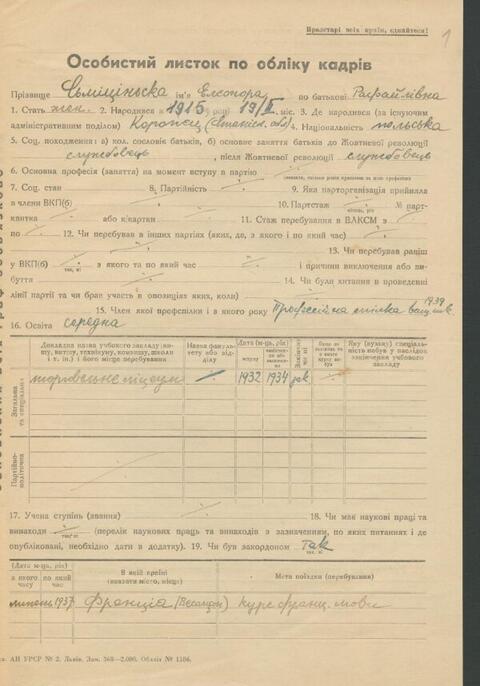 Пролетарі всіх країн, єднайтеся!
1
Особистий листок по обліку кадрів
Прізвище Сьміціньска ім'я Елеонора по батькові Рафайлівна
1. Стать жен. 2. Народився в 1915 році 19/II міс. 3. Де народився (за існуючим
адміністративним поділом) Коропец (Станісл. обл) 4. Національність польська
5. Соц. походження: а) кол. сословіє батьків, б) основне заняття батьків до Жовтневої революції
службовець, після Жовтневої революції службовець
6. Основна професія (заняття) на момент вступу в партію
7. Соц. стан 8. Партійність 9. Яка парторганізація прийняла
в члени ВКП(б) 10. Партстаж № парт-
квитка або к/картки 11. Стаж перебування в ВЛКСМ з
по 12. Чи перебував в інших партіях (яких, де, з якого і по який час)
13. Чи перебував раніш
у ВКП(б) з якого та по який час і причини виключення або ви-
буття 14. Чи були хитання в проведенні
лінії партії та чи брав участь в опозиціях яких, коли)
15. Член якої профспілки і з якого року Професійна спілка 1939
16. Освіта середна
Докладна назва учбового закладу (ви-
шу, втузу, технікуму, комвишу, школи
і т. ін.) і його місце перебування
Назва факуль-
тету або від-
ділу
Дата (м-ць, рік)
вступу
Яку (вузьку) спеціаль-
ність набув у наслідок
закінчення учбового
закладу
Загальна
та спеціальна
1932 1934
Партійно-
політична
17. Учена ступінь (звання) 18. Чи має наукові праці та
винаходи (перелік наукових праць та винаходів з зазначенням, по яких питаннях і де
опубліковані, необхідно дати в додатку). 19. Чи був закордоном так
Дата (м-ць, рік)
з якого часу
по який час
В якій країні
(вказати місто, місце)
Мета поїздки (перебування)
липень 1937 Франція курс франц. мови
АН УРСР № 2. Львів. Зам. 368—2.000. Обліт № 1586.